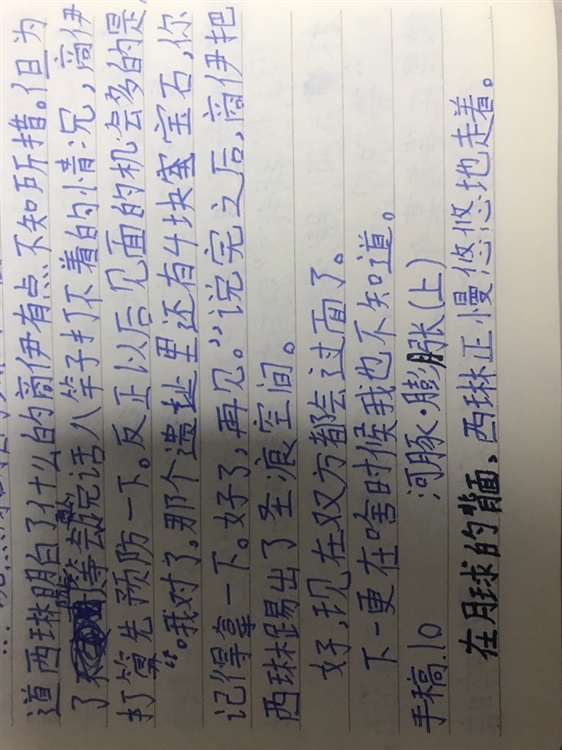 道西琳明白了什么的商伊有点不知所措。但为
了等会说话八竿子打不着的情况，商伊
打算先预防一下。反正以后见面的机会多的是
“。哦对了，那个遗址里还有4块蛮宝石，你
记得拿一下。好了，再见。”说完之后，商伊把
西琳踢出了圣痕空间。
好，现在双方都会过面了。
下一更在啥时候我也不知道。
手稿.10 河豚·膨胀(上)
在月球的背面，西琳正慢悠悠地走着。